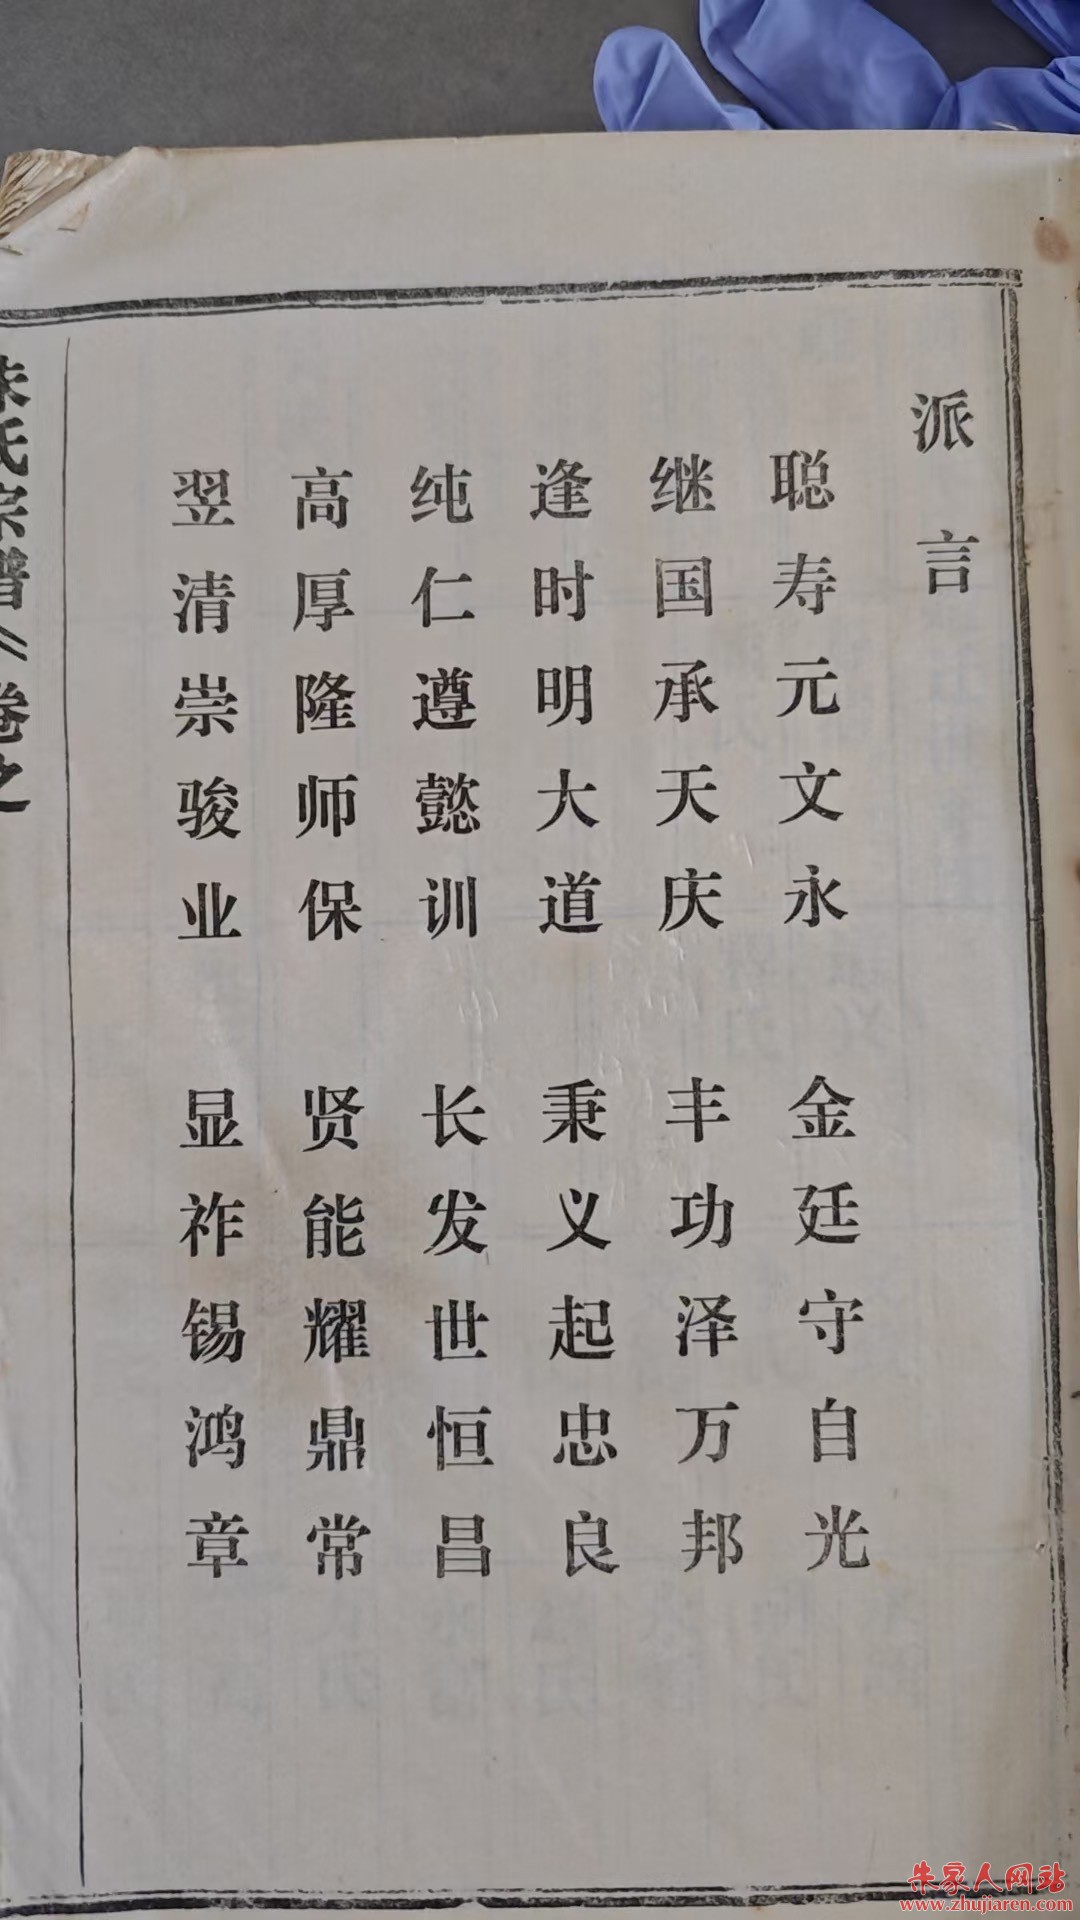 派言
聪寿元文永 金廷守自光
继国承天庆 丰功泽万邦
逢时明大道 秉义起忠良
纯仁遵懿训 长发世恒昌
高厚隆师保 贤能耀鼎常
翌清崇骏业 显祚锡鸿章
朱氏宗谱 卷之
朱家人网站
www.zhujiaren.com